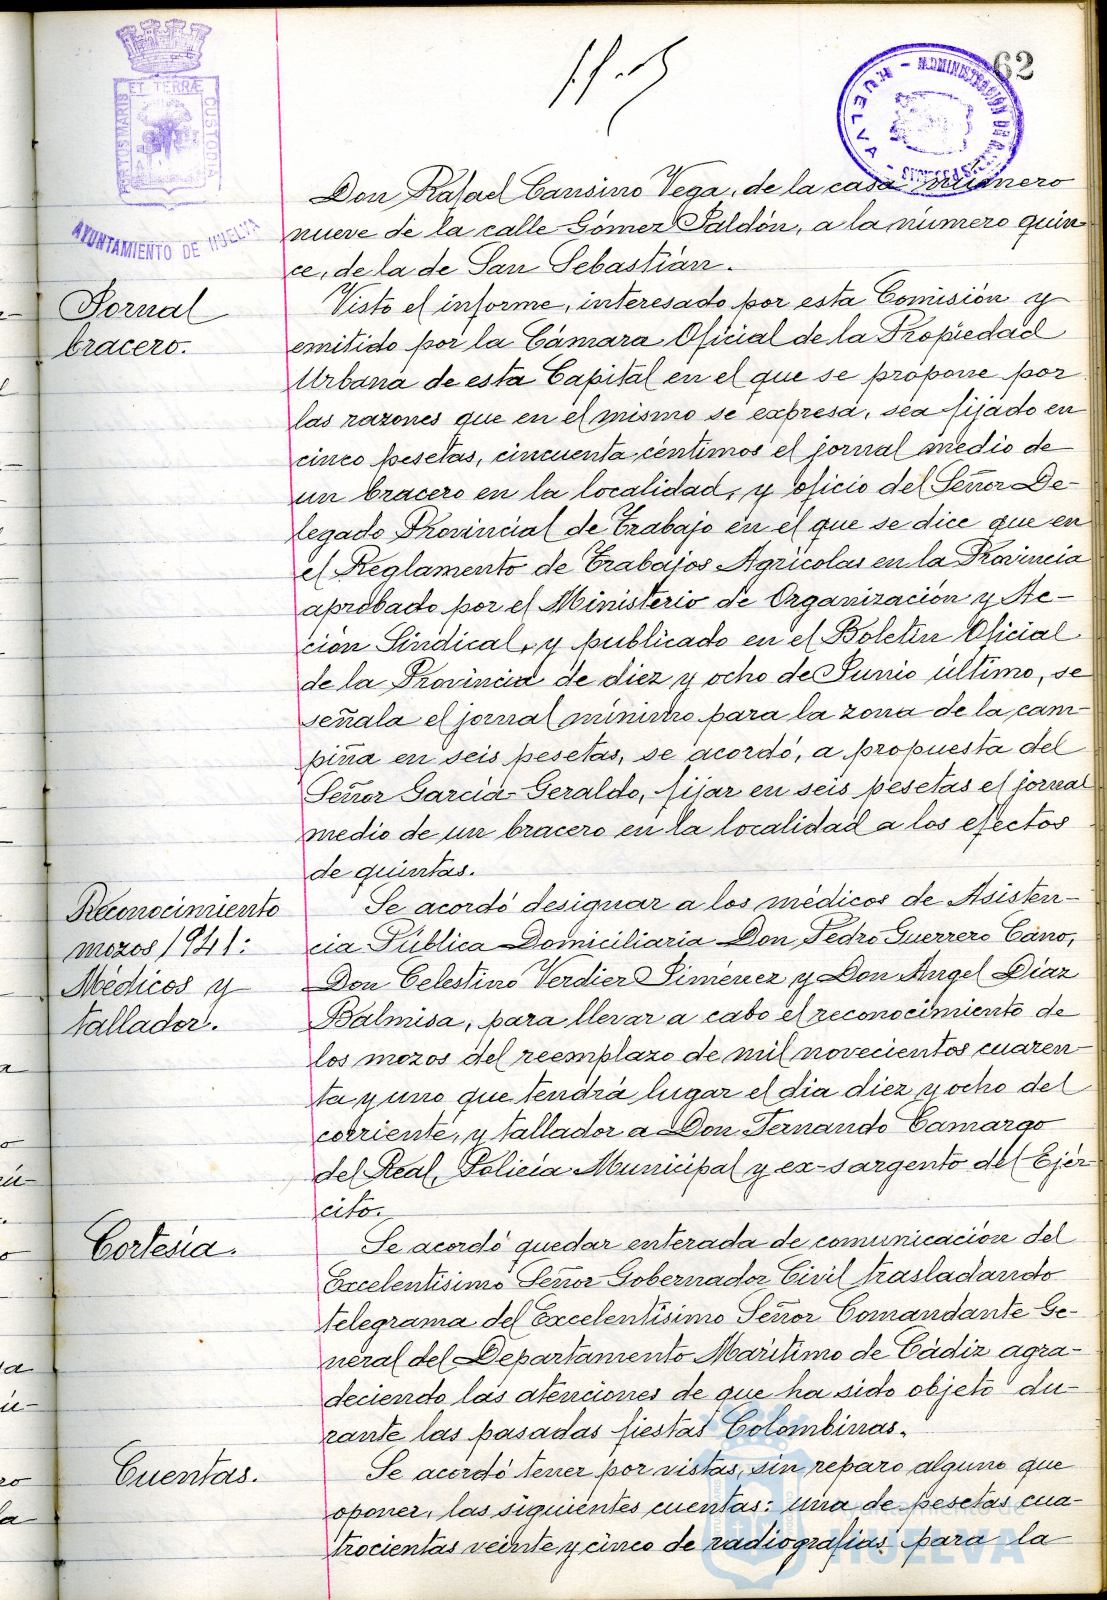 62
PORTUS MARIS ET TERRÆ CUSTODIA
AYUNTAMIENTO DE HUELVA
HUELVA
Don Rafael Cansino Vega, de la casa número
nueve de la calle Gómez Jaldón, a la número quin-
ce, de la de San Sebastián.
Jornal
bracero.
Visto el informe, interesado por esta Comisión y
emitido por la Cámara Oficial de la Propiedad
Urbana de esta Capital en el que se propone por
las razones que en el mismo se expresa, sea fijado en
cinco pesetas, cincuenta céntimos el jornal medio de
un bracero en la localidad, y oficio del Señor De-
legado Provincial de Trabajo en el que se dice que en
el Reglamento de Trabajos Agrícolas en la Provincia
aprobado por el Ministerio de Organización y Ac-
ción Sindical, y publicado en el Boletín Oficial
de la Provincia de diez y ocho de Junio último, se
señala el jornal mínimo para la zona de la cam-
piña en seis pesetas, se acordó, a propuesta del
Señor García-Geraldo, fijar en seis pesetas el jornal
medio de un bracero en la localidad a los efectos
de quintas.
Reconocimiento
mozos 1941:
Médicos y
tallador.
Se acordó designar a los médicos de Asisten-
cia Pública Domiciliaria Don Pedro Guerrero Cano,
Don Celestino Verdier Jiménez y Don Angel Díaz
Balmisa, para llevar a cabo el reconocimiento de
los mozos del reemplazo de mil novecientos cuaren-
ta y uno que tendrá lugar el día diez y ocho del
corriente, y tallador a Don Fernando Camargo
del Real, Policía Municipal y ex-sargento del Ejér-
cito.
Cortesía.
Se acordó quedar enterada de comunicación del
Excelentísimo Señor Gobernador Civil trasladando
telegrama del Excelentísimo Señor Comandante Ge-
neral del Departamento Marítimo de Cádiz agra-
deciendo las atenciones de que ha sido objeto du-
rante las pasadas fiestas Colombinas.
Cuentas.
Se acordó tener por vistas, sin reparo alguno que
oponer, las siguientes cuentas: una de pesetas cua-
trocientas veinte y cinco de radiografías para la
Ayuntamiento de
HUELVA